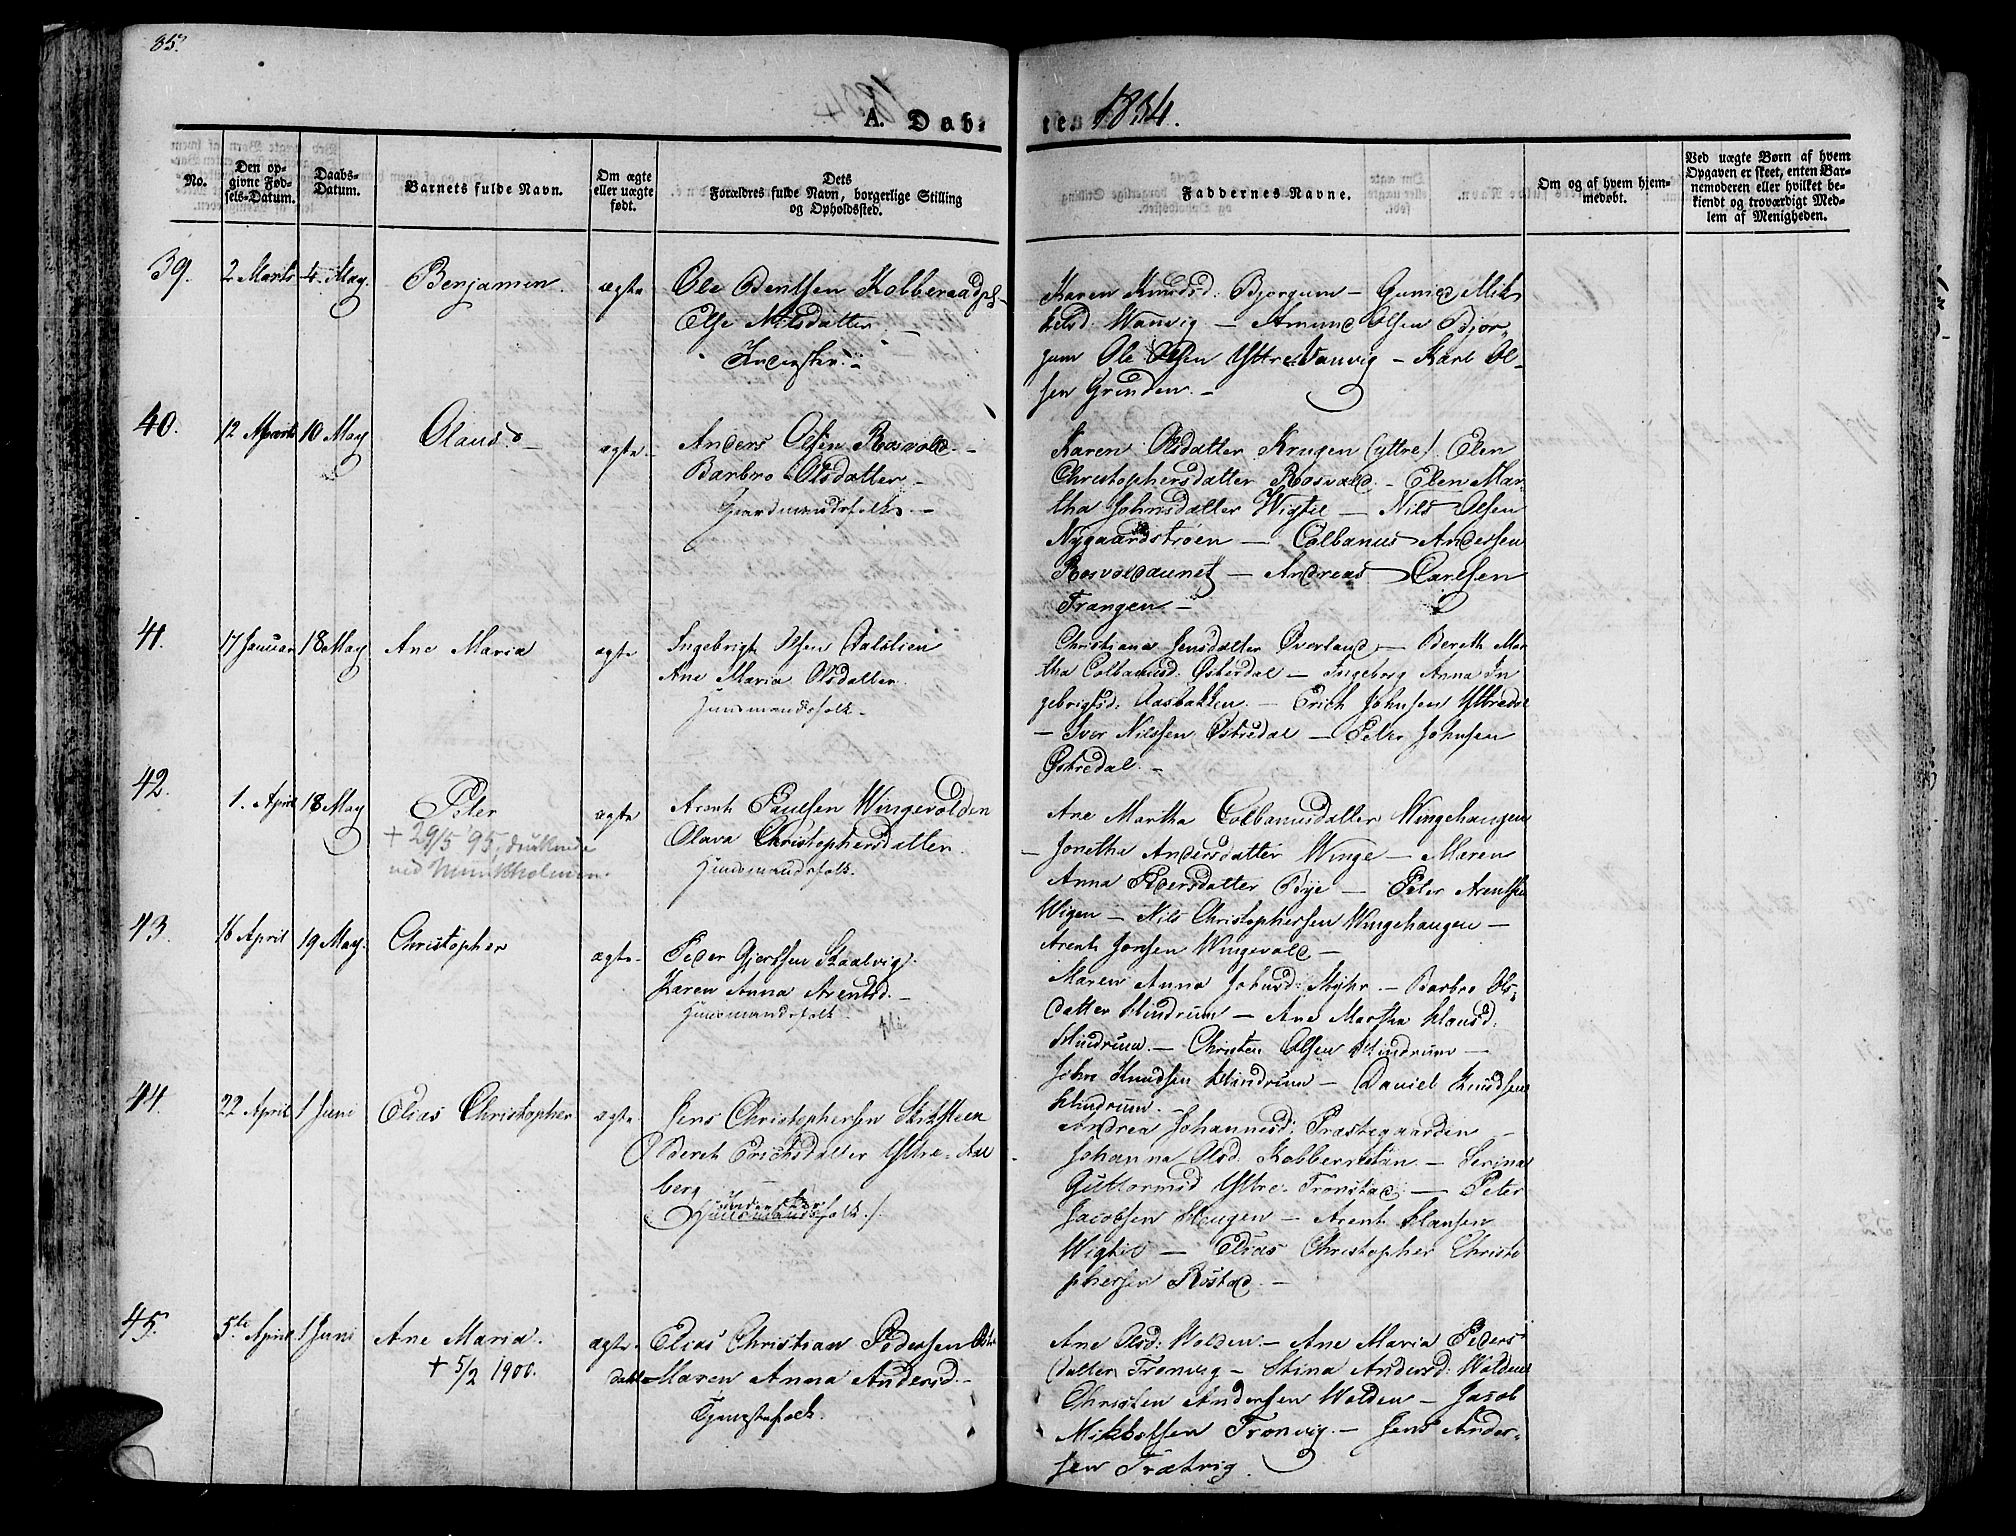 85.
A. Døbte 1834.
No.
Den opgivne Fødsels-Datum.
Daabs-Datum.
Barnets fulde Navn.
Om ægte eller uægte født.
Dets Forældres fulde Navn, borgerlige Stilling og Opholdssted.
Faddernes Navne.
Om og af hvem hjemmedøbt.
Ved uægte Børn af hvem Opgaven er skeet, enten Barnemoderen eller hvilket bekiendt og troværdigt Medlem af Menigheden.
39. 2 Marts 4. May. Benjamin. ægte Ole Bentsen Kolberaadpl
Else Nilsdatter
Inderster
Karen Knudsd: Bjørgum - GuniId Mik
kelsd: Wanvig - Amund Olsen Bjør-
gum Ole Olsen Yttre Vanvig - Karl Ol-
sen Grinden. -
40. 12 April 10 May Olaus - ægte - Anders Olsen Rosvold. -
Barbro Olsdatter -
Gaardmandsfolk. -
Karen Olsdatter Krugen (yttre). Elen
Christophersdatter Rosvold - Elen Mar-
tha Johnsdatter Wigtil - Nils Olsen
Nygaardstrøen - Colbanus Andersen
Rosvoldaunet - Andreas Carlsen
Trangen -
41. 17 Januar 18 May Ane Maria ægte Ingebrigt Olsen Dalslien
Ane Maria Olsdatter.
Huusmandsfolk. -
Christiana Jensdatter Øverland - Bereth Mar
tha Colbanusd: Østerdal - Ingeborg Anna In
gebrigtsd: Aasbakken. - Erich Johnsen Ytredal
- Iver Nilssen Østredal - Peter Johnsen
Østredal. -
42. 1. April 18 May Peter ægte Arent Paulsen Wingevolden
+ 29/5 95. druknede
ved Munkholmen.
Olava Christophersdatter.
Huusmandsfolk.
Ane Martha Colbanusdatter Wingehaugen
- Jonetha Andersdatter Winge - Maren
Anna Iversdatter Bye - Peter Arentsen
Wigen - Nils Christophersen Wingehaugen -
Arent Jonsen Wingevold -
43. 16 April 19 May. Christopher ægte. Peder Gjertsen Skaalvig.
Karen Anna Arentsd. -
Huusmandsfolk.
Maren Anna Johnsd: Myhr - Barbro Ols-
datter Hindrum - Ane Martha Hansd:
Hindrum. - Christen Olsen Hindrum -
John Knudsen Hindrum - Daniel Knudsen
Hindrum. -
44. 22 April 1 Juni Elias Christopher ægte Jens Christophersen
Bereth Erichsdatter Yttre-Aal
berg
Inderster
Huusmandsfolk
Andrea Johannesd: Præstegaarden -
Johanna Olsd. - Serina
Guttormsd Yttre-Tronstad - Peter
Jacobsen Haugen - Arent Hansen
Wigtil - Elias Christopher Christo
phersen Rostad. -
45. 5te April 1 Juni Ane Maria. ægte. Elias Christian Pedersen
+ 5/2 1900.
Maren Anna Andersd. -
Tjenestefolk.
Ane Olsd: Wolden - Ane Maria Peders
datter Trønvig - Stina Andersd: Wolden
Christen Andersen Wolden - Jacob
Mikkelsen Trønvig. - Jens Ander-
sen Trætvig.